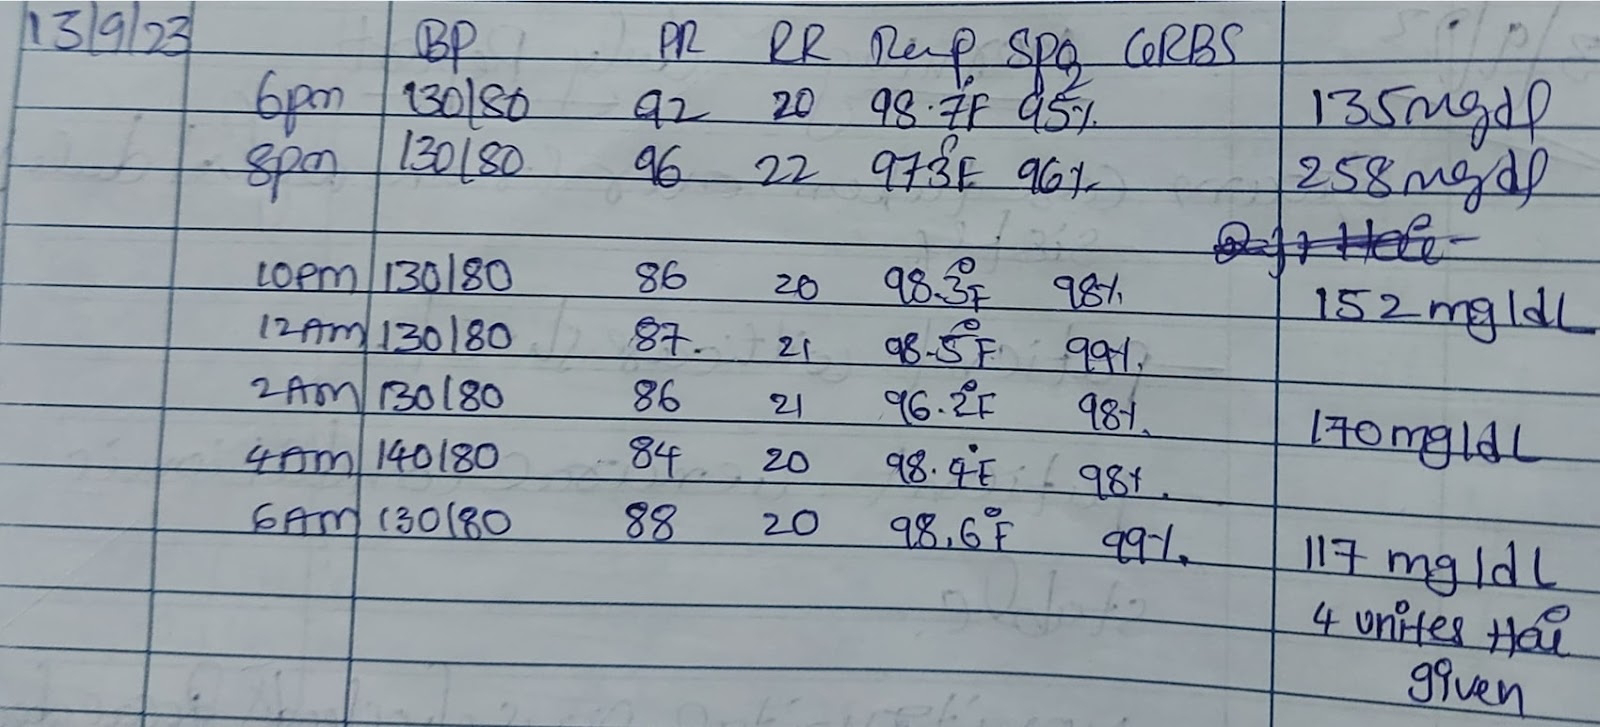 13/9/23 BP PR RR Temp SPO2 GRBS
6pm 130/80 92 20 98.7°F 95% 135mgdl
8pm 130/80 96 22 97.3°F 96% 258mgdl
10pm 130/80 86 20 98.3°F 98% 152 mg/dL
12Am 130/80 87. 21 98.5°F 99%
2Am 130/80 86 21 96.2°F 98% 170mg/dL
4Am 140/80 84 20 98.4°F 98%
6Am 130/80 88 20 98.6°F 99% 117 mg/dL
4 unites HAI
given